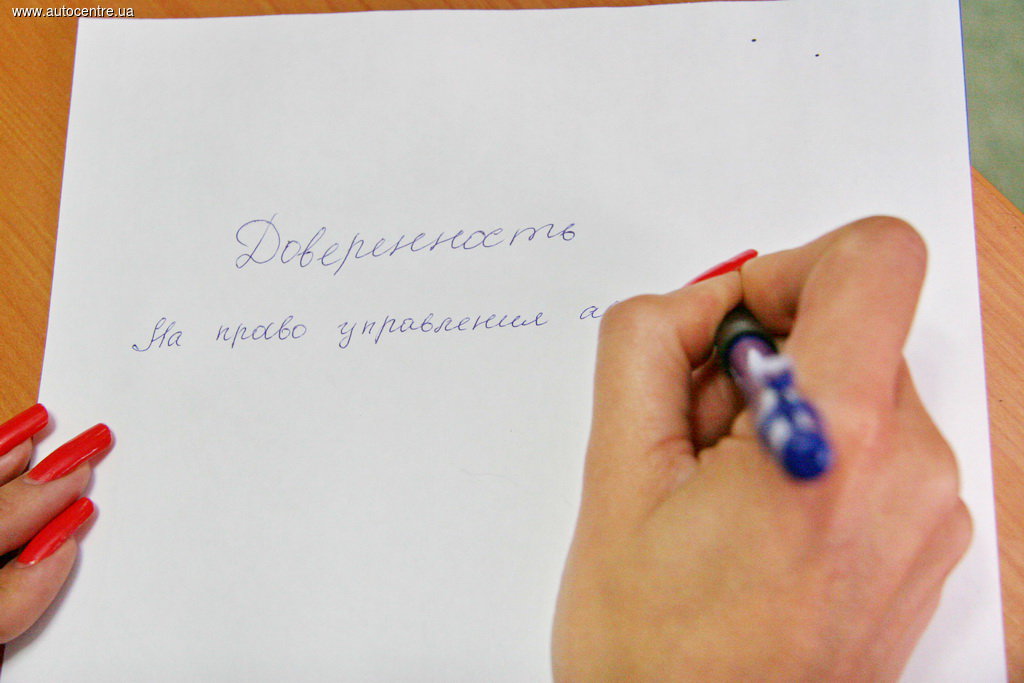 www.autocentre.ua
Доверенность
На право управления